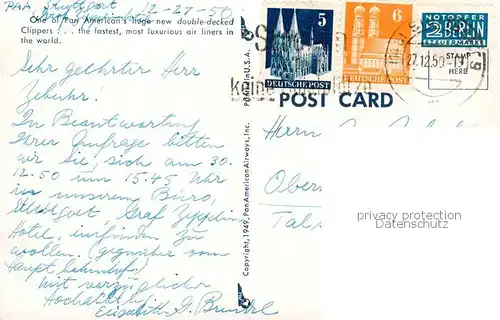 PAA Stuttgart 12-27-50
One of Pan American's huge new double-decked
Clippers . . . the fastest, most luxurious air liners in
the world.
Sehr geehrter Herr
In Beantwortung
Ihrer Anfrage bitten
wir Sie, sich am 30.
12.50 um 15.45 Uhr
in unserem Büro,
Stuttgart, Graf Zeppelin
Hotel, einfinden zu
wollen. (gegenüber vom
Hauptbahnhof!)
Mit vorzüglicher
Hochachtung
Elisabeth J.
in U.S.A.
Copyright, 1949, Pan American Airways, Inc.
5
DEUTSCHE POST
6
DEUTSCHE POST
NOTOPFER
2 BERLIN
STEUERMARKE
27.12.50
keine
STAMP
HERE
POST CARD
Herrn
Ober
Tal
privacy protection
Datenschutz